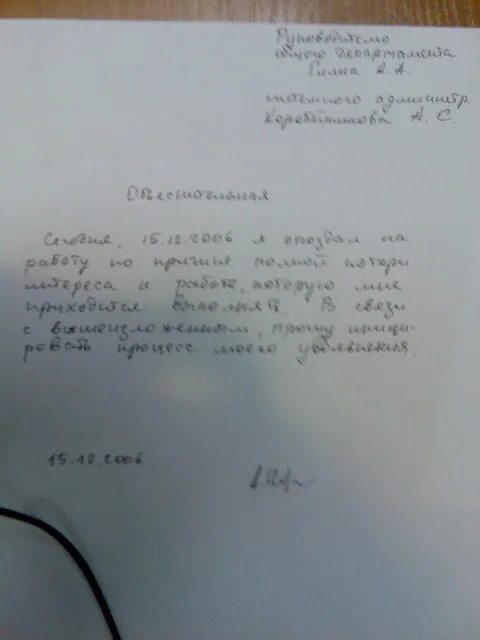 Руководителю
общего департамента
А. А.
системного администр.
Коробейникова А. С.
Объяснительная
Сегодня, 15.12.2006 я опоздал на
работу по причине полной потери
интереса к работе, которую мне
приходится выполнять. В связи
с вышеизложенным, прошу иниции-
ровать процесс моего увольнения.
15.12.2006